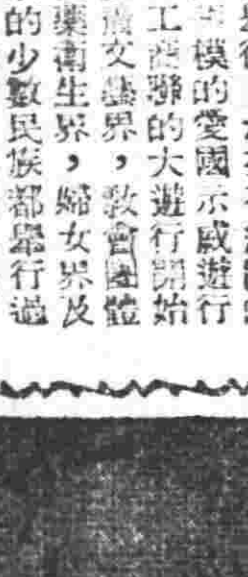 模的愛國示威遊行
工商聯的大遊行開始
文藝界，教會團體
藥衛生界，婦女界及
的少數民族都舉行過